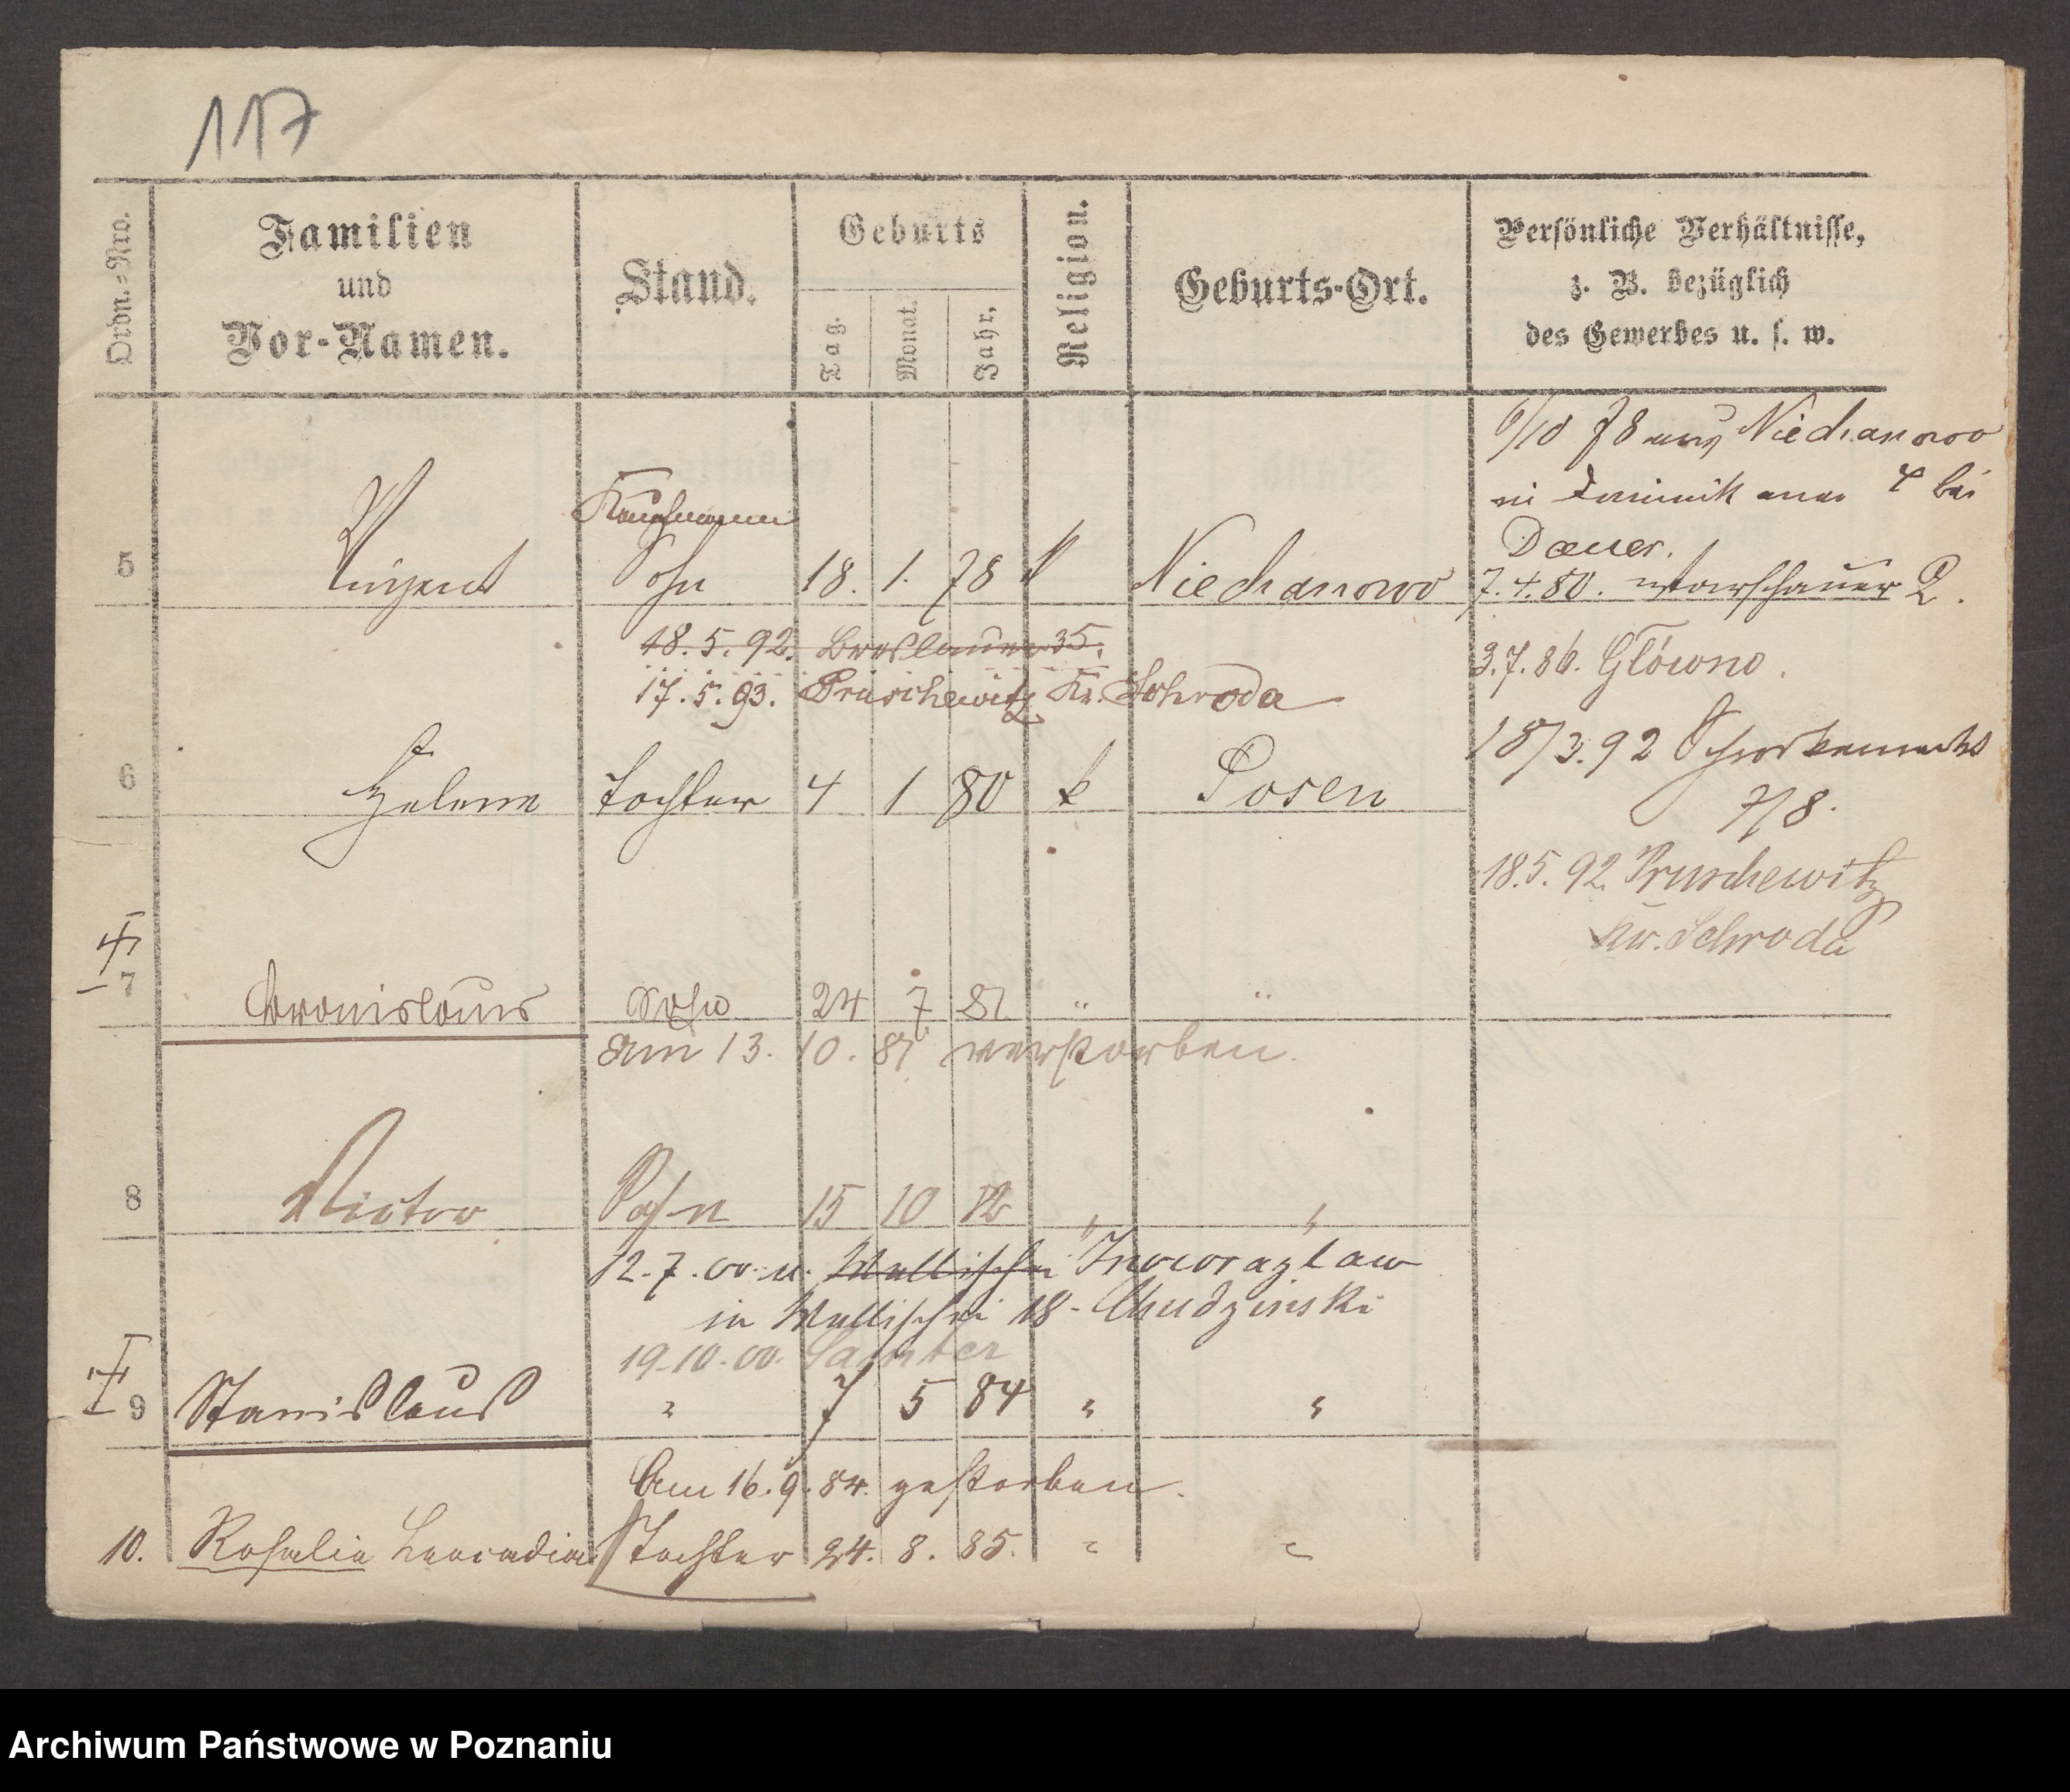 117
Ordn.=Nro.
Familien
und
Vor-Namen.
Stand.
Geburts
Tag.
Monat.
Jahr.
Religion.
Geburts-Ort.
Persönliche Verhältnisse,
z. B. bezüglich
des Gewerbes u. s. w.
6/10 78 aus Niechanowo
4 bei
Dauer.
Kaufmann
5 Vinzent Sohn 18. 1. 78 k Niechanowo
7.4.80. Warschauer 2.
18.5.92. Breslauer 35.
3.7.86. Główno.
17.5.93. Pruschewitz Kr. Schroda
18/3.92
7/8.
6 Helena Tochter 4 1 80 k Posen
18.5.92. Pruschewitz
Kr. Schroda
7 Bronislaus Sohn 24 7 81 " "
Am 13. 10. 81 verstorben.
8 Victor Sohn 15 10 82 " "
12.7.00. v. Wallischei Inowrazlaw
in Wallischei 18 - Chudzinski
19.10.00. Samter
9 Stanislaus " 7 5 84 " "
Am 16.9.84. gestorben.
10. Rosalia Leocadia Tochter 24. 8. 85. " "
Archiwum Państwowe w Poznaniu